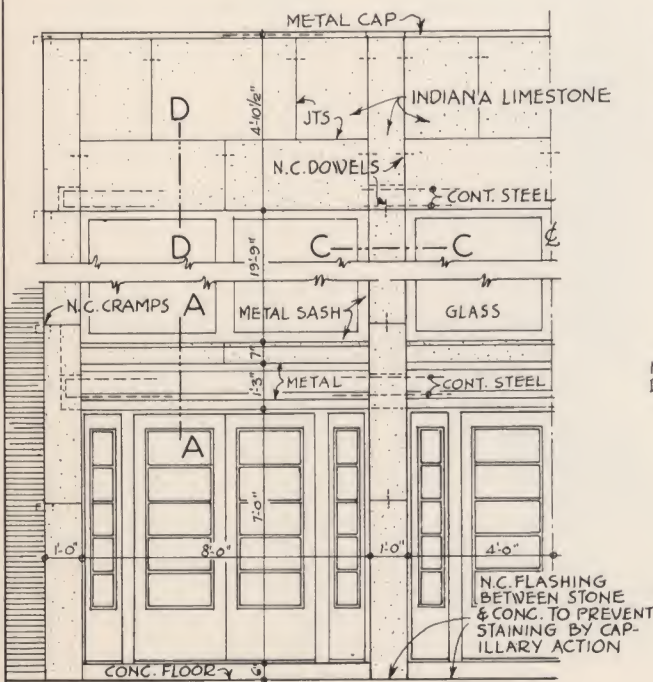 METAL CAP
D
4'-10½"
JTS
INDIANA LIMESTONE
N.C. DOWELS
CONT. STEEL
D
19'-9"
C
C
℄
N.C. CRAMPS
A
METAL SASH
GLASS
7"
1'-3"
METAL
CONT. STEEL
A
7'-0"
1'-0"
8'-0"
1'-0"
4'-0"
N.C. FLASHING
BETWEEN STONE
& CONC. TO PREVENT
STAINING BY CAP-
ILLARY ACTION
CONC. FLOOR
6"